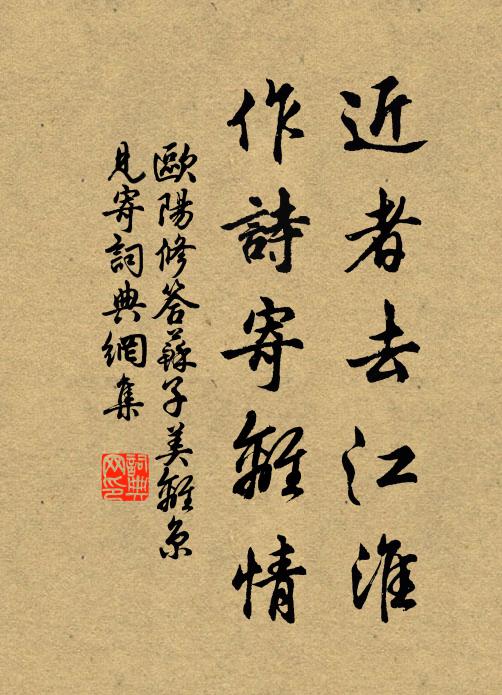 近者去江淮
作詩寄離情
歐陽修答蘇子美離京
見寄詞典網集
詞典
网印